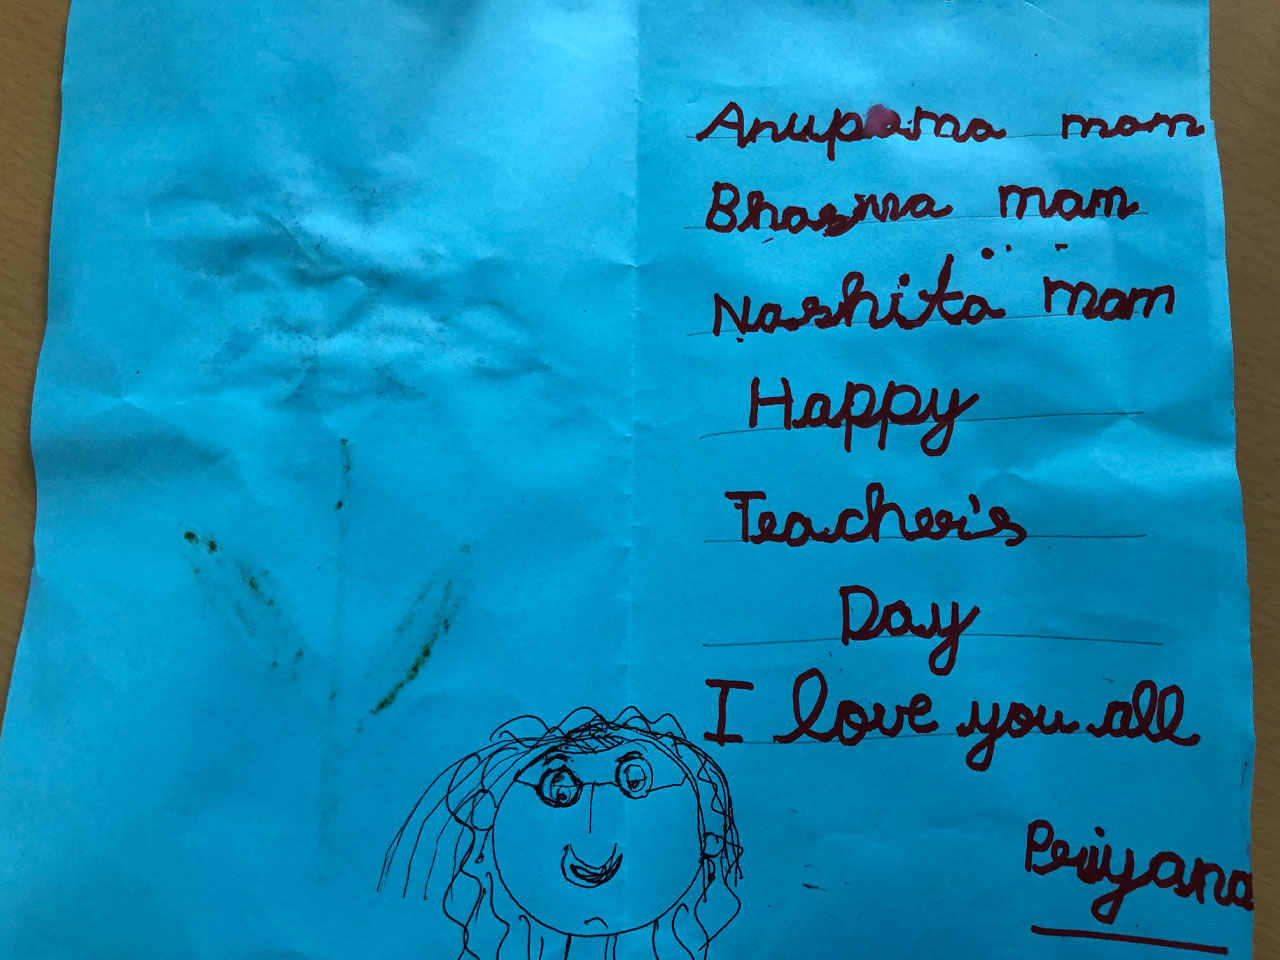 Anupama mam
Bhasma mam
Nashita mam
Happy
Teacher's
Day
I love you all
Periyana